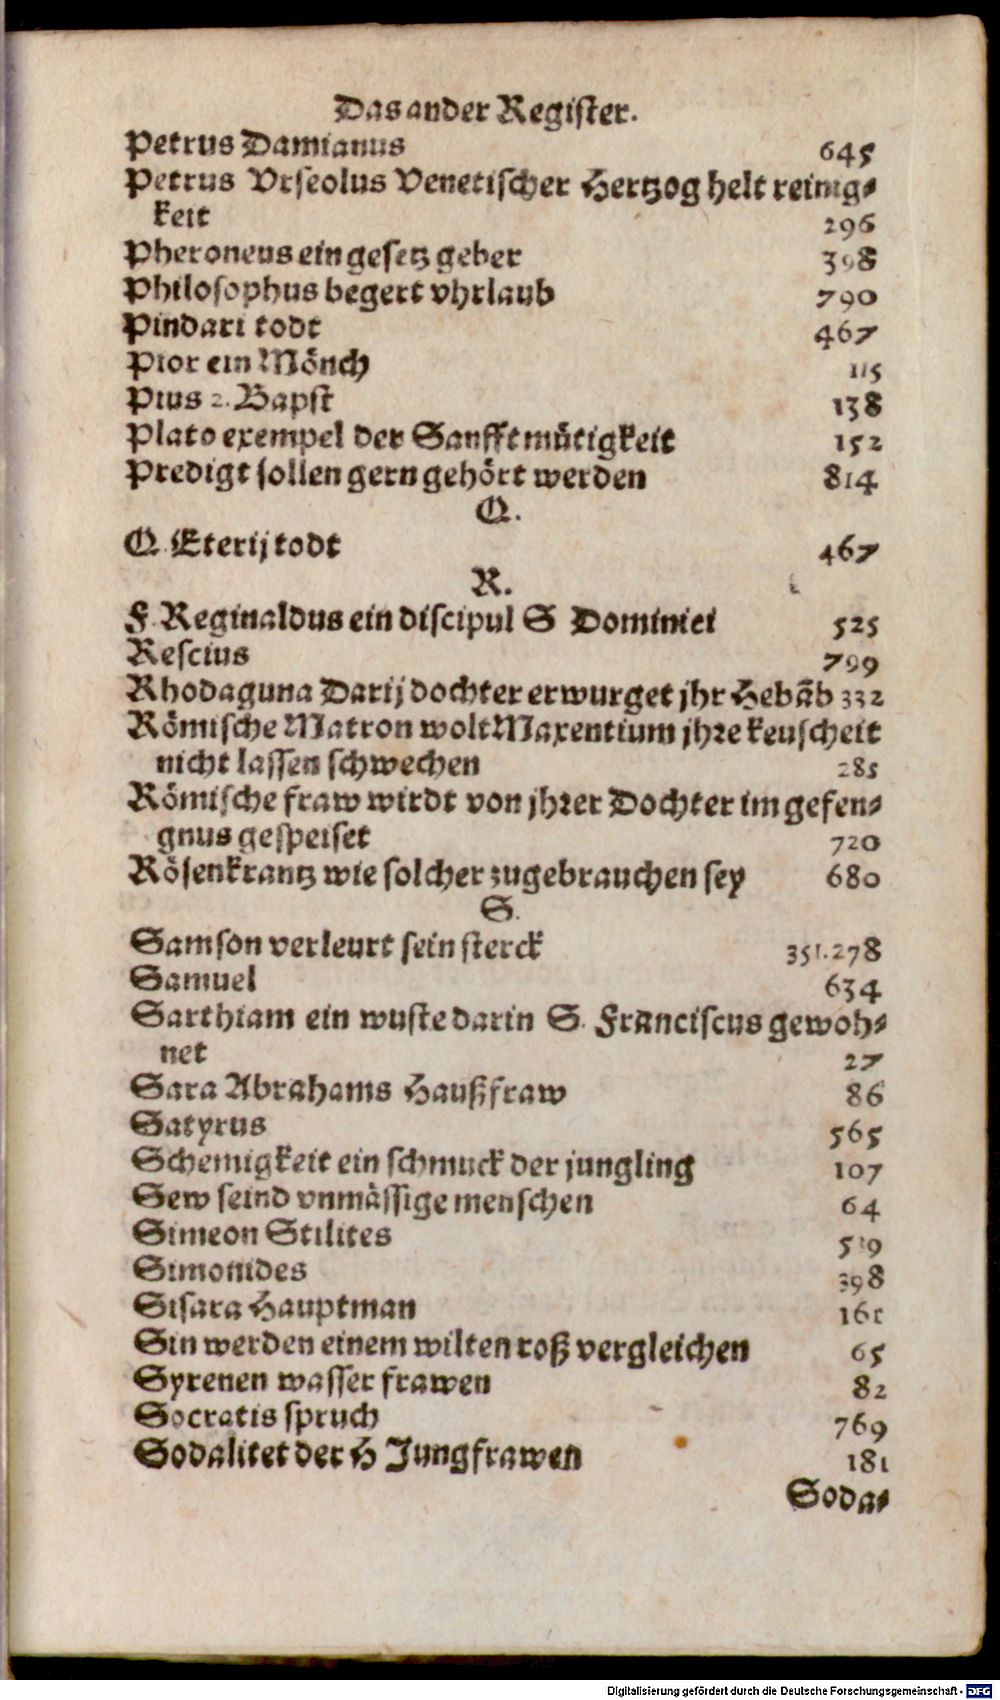 Das ander Register.
Petrus Damianus 645
Petrus Vrseolus Venetischer Hertzog helt reinig⸗
keit 296
Pheroneus ein gesetz geber 398
Philosophus begert vhrlaub 790
Pindari todt 467
Pior ein Mönch 115
Pius 2. Bapst 138
Plato exempel der Sanfftmütigkeit 152
Predigt sollen gern gehört werden 814
Q.
Q. Eterij todt 467
R.
F. Reginaldus ein discipul S Dominici 525
Rescius 799
Rhodaguna Darij dochter erwurget jhr Hebãb 332
Römische Matron wolt Maxentium jhre keuscheit
nicht lassen schwechen 285
Römische fraw wirdt von jhrer Dochter im gefen⸗
gnus gespeiset 720
Rösenkrantz wie solcher zugebrauchen sey 680
S.
Samson verleurt sein sterck 351.278
Samuel 634
Sarthiam ein wuste darin S. Franciscus gewoh⸗
net 27
Sara Abrahams Haußfraw 86
Satyrus 565
Schemigkeit ein schmuck der jungling 107
Sew seind vnmässige menschen 64
Simeon Stilites
Simonides 398
Sisara Hauptman
Sin werden einem wilten roß vergleichen 65
Syrenen wasser frawen 82
Socratis spruch 769
Sodalitet der H Jungfrawen 181
Soda⸗
Digitalisierung gefördert durch die Deutsche Forschungsgemeinschaft - DFG